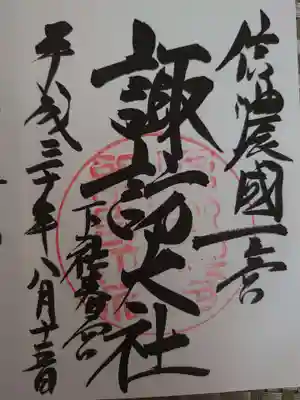 信濃國一宮
諏訪大社
下社春宮
平成三十年八月十三日